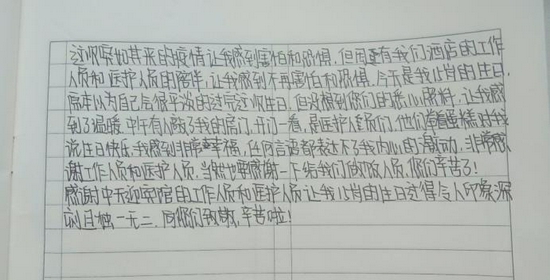 这次突如其来的疫情让我感到害怕和恐惧，但因还有我们酒店的工作
人员和医护人员的陪伴，让我感到不再害怕和恐惧。今天是我15岁的生日，
原本以为自己会很平淡的过完这次生日，但没想到你们的悉心照料，让我感
到了温暖。中午有人敲了我的房门，开门一看，是医护人员们，他们拿着蛋糕对我
说生日快乐。我感到非常幸福，任何言语都表达不了我内心的激动。非常感
谢工作人员和医护人员，当然也要感谢一下给我们做饭人员，你们辛苦了！
感谢中天迎宾馆的工作人员和医护人员让我15岁的生日过得令人印象深
刻且独一无二，向你们致敬，辛苦啦！